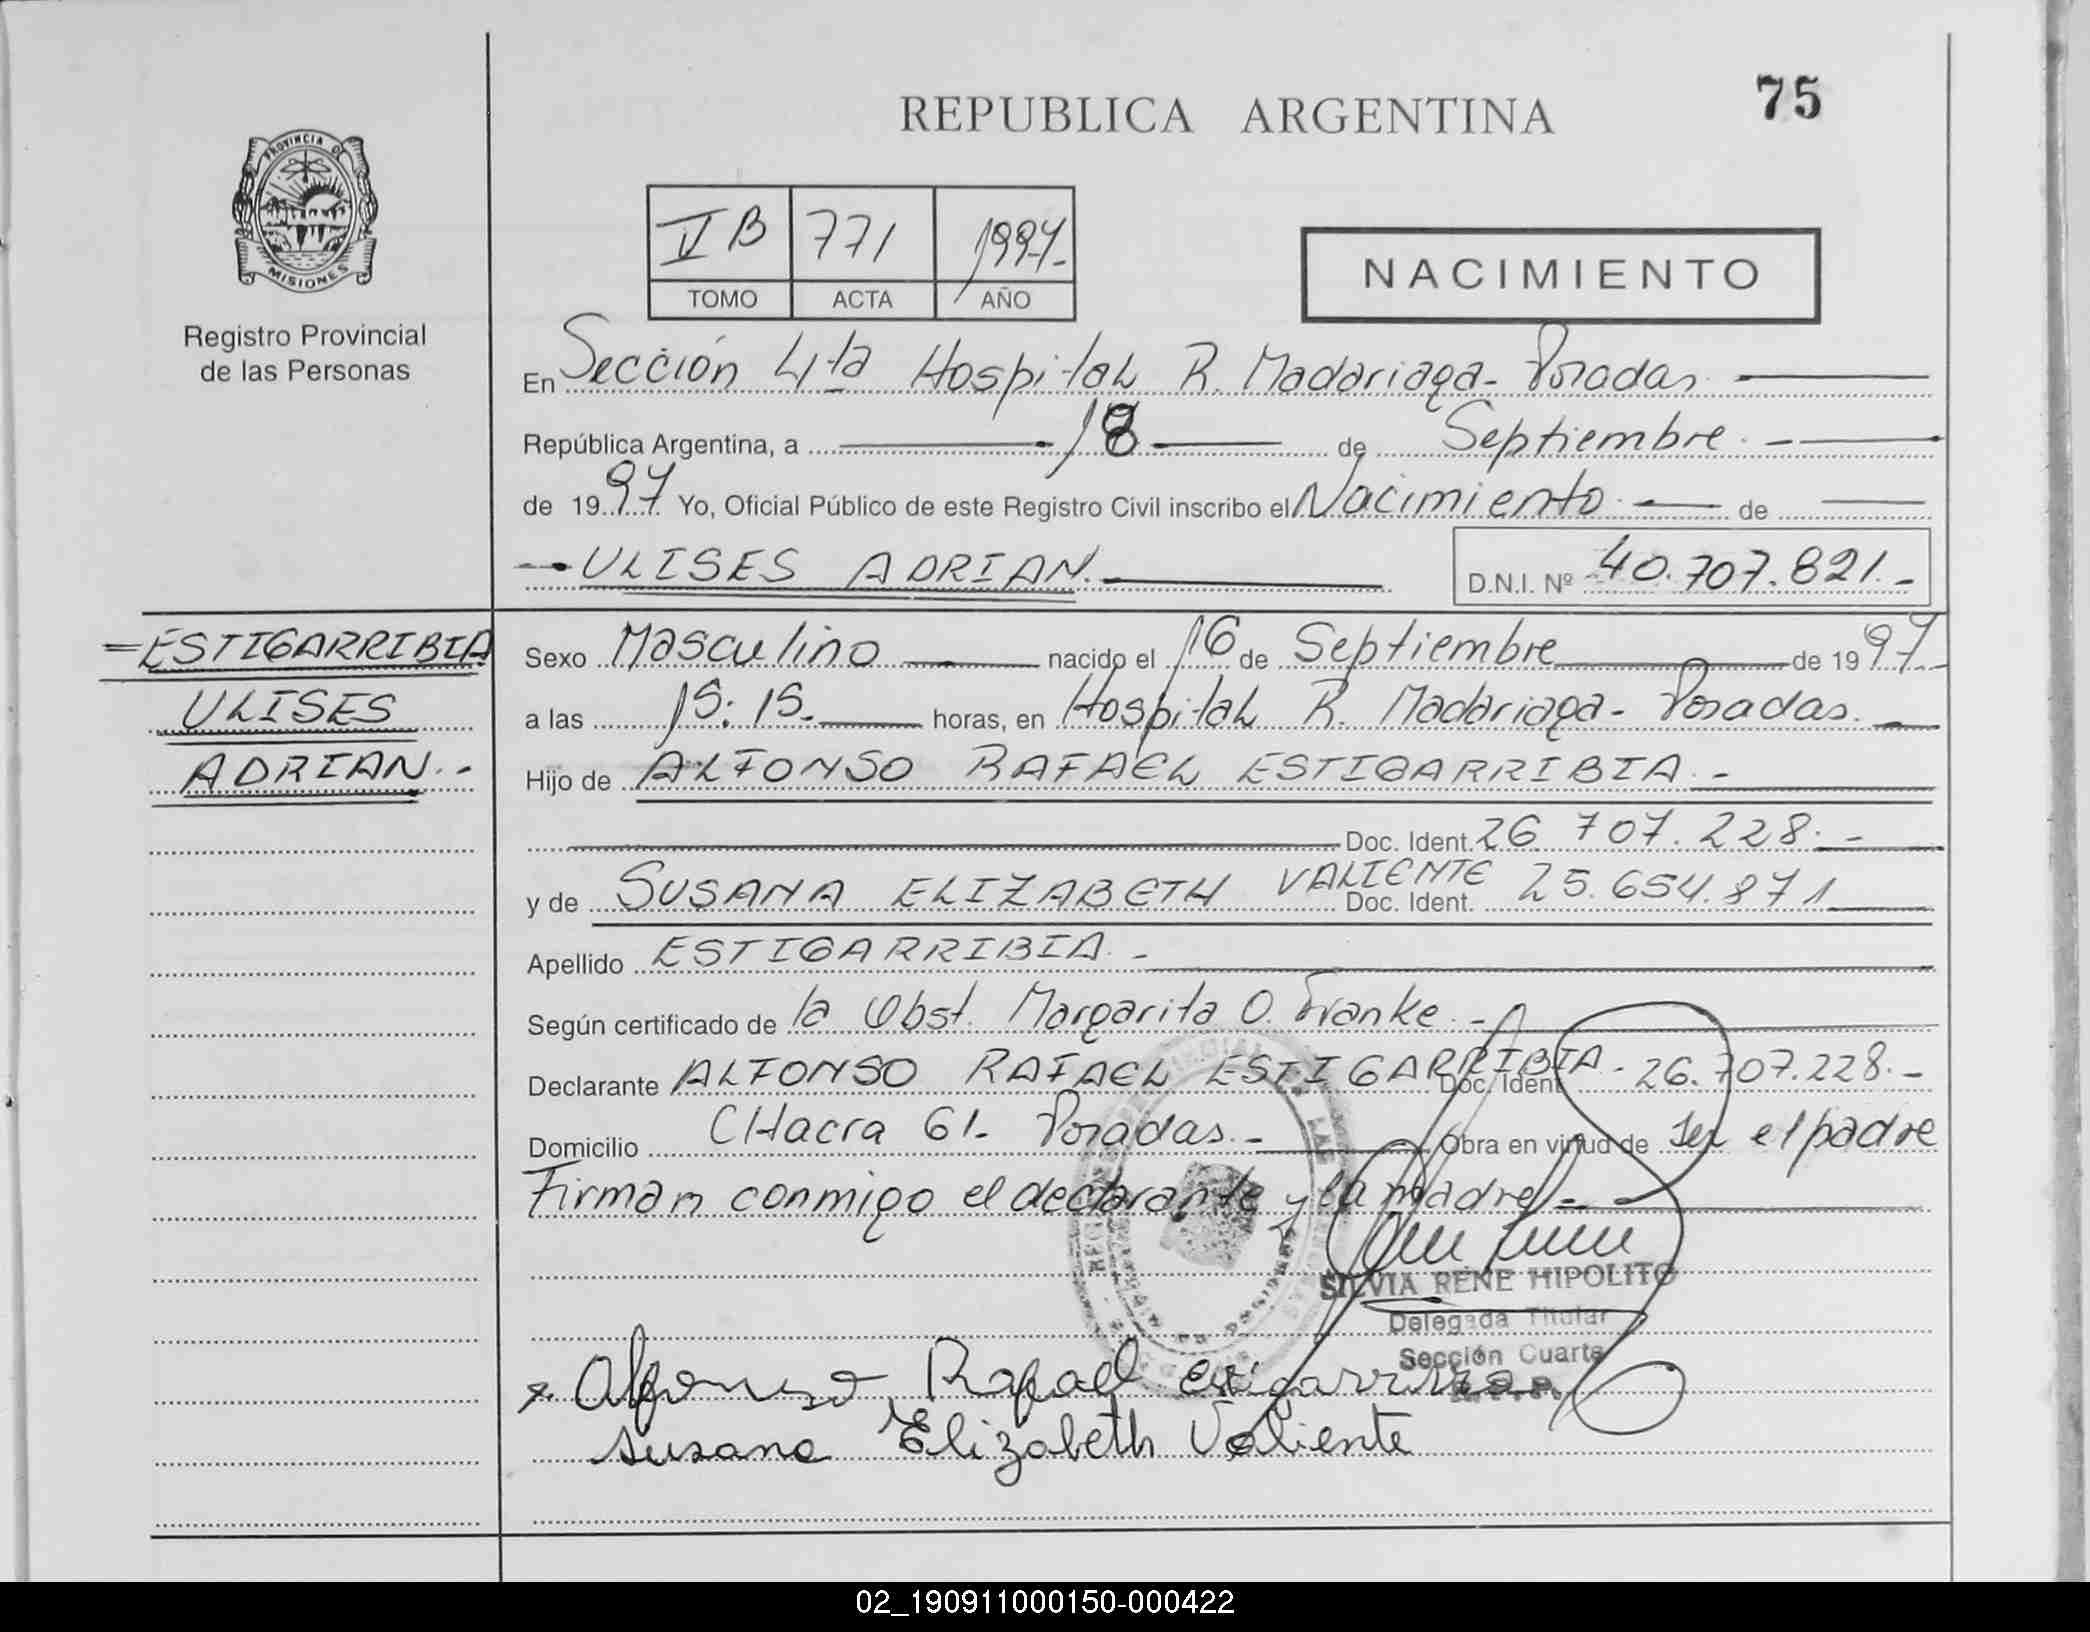 REPUBLICA ARGENTINA
75
PROVINCIA DE
MISIONES
Registro Provincial
de las Personas
V B 771 1997.-
TOMO ACTA AÑO
NACIMIENTO
En Sección 4ta Hospital R. Madariaga- Posadas.
República Argentina, a 18 de Septiembre.-
de 1997 Yo, Oficial Público de este Registro Civil inscribo el Nacimiento.- de
ULISES ADRIAN.-
D.N.I. Nº 40.707.821.-
=ESTIGARRIBIA
ULISES
ADRIAN.-
Sexo Masculino nacido el 16 de Septiembre de 1997.-
a las 15:15. horas, en Hospital R. Madariaga- Posadas.-
Hijo de ALFONSO RAFAEL ESTIGARRIBIA.-
Doc. Ident. 26.707.228.-
y de SUSANA ELIZABETH VALIENTE Doc. Ident. 25.654.871
Apellido ESTIGARRIBIA.-
Según certificado de la Obst. Margarita O. Franke.-
Declarante ALFONSO RAFAEL ESTIGARRIBIA- Doc. Ident 26.707.228.-
Domicilio CHacra 61- Posadas.- Obra en virtud de Ser el padre
Firman conmigo el declarante y la madre.-
SILVIA RENE HIPOLITO
Delegada Titular
Sección Cuarta
Alfonso Rafael estigarribia
susana Elizabeth Valiente
02_190911000150-000422